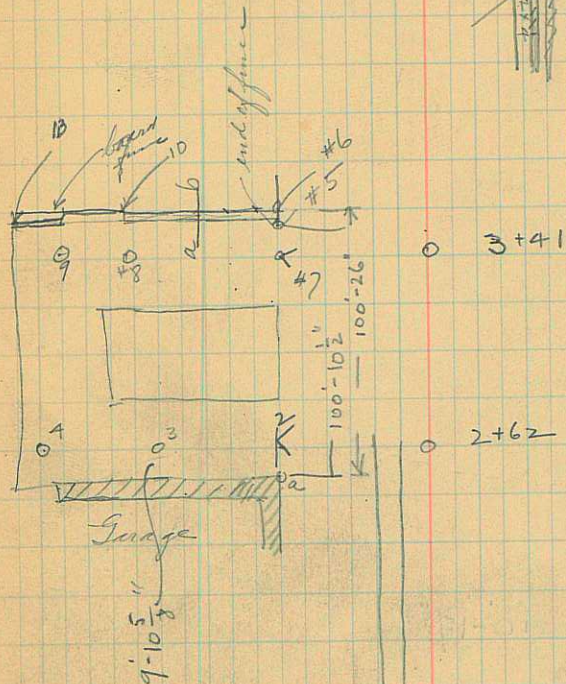 13
board
fence
10
end of fence
#6
#5
b
a
9
#8
#7
3+41
100'-10 1/2"
100'-26"
4
3
2
2+62
a
Garage
9'-10 5/8"